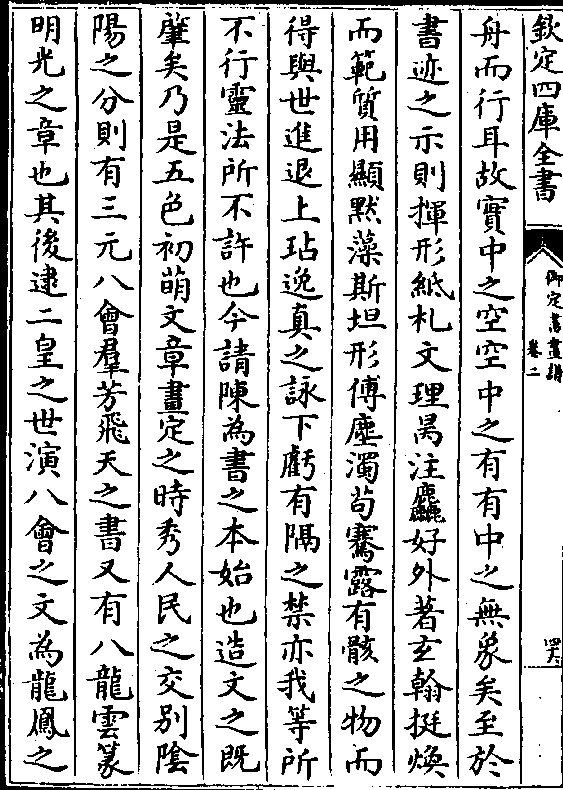 欽定四庫全書
御定書畫譜
卷二
四六
舟而行耳故實中之空空中之有有中之無象矣至於
書迹之示則揮形紙札文理昺注麤好外著玄翰挺煥
而範質用顯默藻斯坦形傅塵濁苟騫露有骸之物而
得與世進退上玷逸真之詠下虧有隔之禁亦我等所
不行靈法所不許也今請陳為書之本始也造文之既
肇矣乃是五色初萌文章畫定之時秀人民之交別隂
陽之分則有三元八會羣芳飛天之書又有八龍雲篆
明光之章也其後逮二皇之世演八會之文為龍鳳之